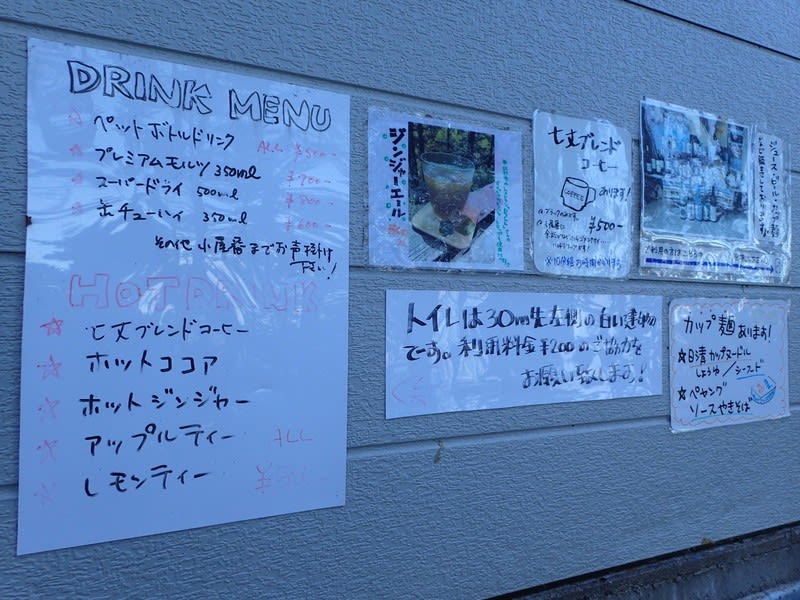 DRINK MENU
☆ ペットボトルドリンク ALL ¥500-
☆ プレミアムモルツ 350ml ¥700-
☆ スーパードライ 500ml ¥800-
☆ 缶チューハイ 350ml ¥600-
その他 小屋番までお声掛け
下さい!
HOT DRINK
☆ 七丈ブレンドコーヒー
☆ ホットココア
☆ ホットジンジャー
☆ アップルティー ALL
☆ レモンティー
ジンジャーエール
七丈ブレンド
コーヒー
COFFEE
あります!
¥500-
トイレは30m先左側の白い建物
です。利用料金¥200のご協力を
お願い致します!
カップ麺あります!
☆日清カップヌードル
しょうゆ/シーフード
☆ペヤング
ソースやきそば